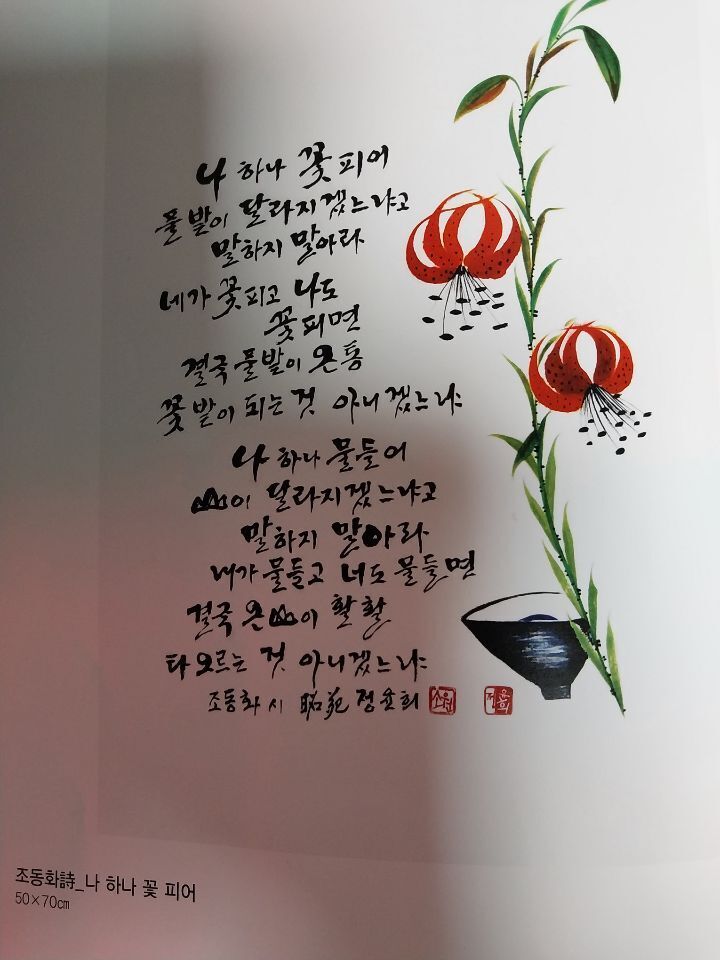 나 하나 꽃 피어
풀밭이 달라지겠느냐고
말하지 말아라
네가 꽃피고 나도
꽃피면
결국 풀밭이 온통
꽃밭이 되는 것 아니겠느냐
나 하나 물들어
山이 달라지겠느냐고
말하지 말아라
내가 물들고 너도 물들면
결국 온 山이 활활
타오르는 것 아니겠느냐
조동화 시 昭苑 정윤희
조동화詩_나 하나 꽃 피어
50×70㎝